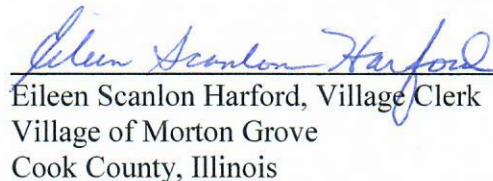 Eileen Scanlon Harford
Eileen Scanlon Harford, Village Clerk
Village of Morton Grove
Cook County, Illinois